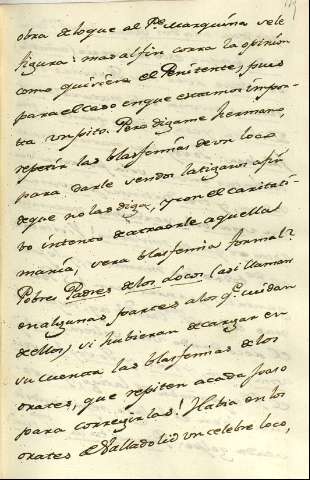 obra de loque al Pe. Marquina sele
figura: mas alfin corra la opinion
como quisiere el Penitente, pues
para el caso enque estamos impor-
ta un pito. Pero digame hermano,
repetir las blasfemias de un loco
para darle sendos latigazos afin
deque no las diga, y con el caritati-
vo intento de atraerle aquella
mania, sera blasfemia formal?
Pobres Padres de los Locos (asi llaman
en algunas partes alos qe. cuidan
de ellos) si hubieran de cargar en
su cuenta las blasfemias de los
orates, que repiten acada paso
para corregirlas! Habia en los
orates de Valladolid un celebre loco,